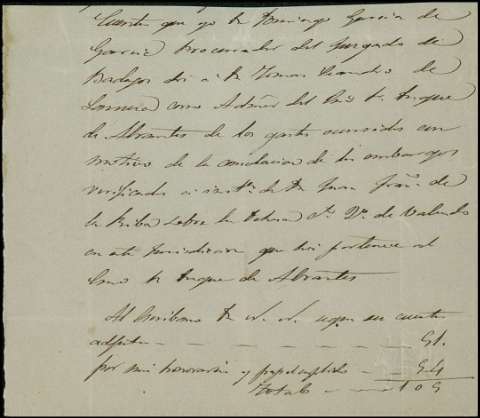 Cuenta que yo Dn Domingo Garcia de
Garcia Procurador del Juzgado de
Badajoz doi a Dn Tomas de
como Admor del Exmo Sr Duque
de Abrantes de los gastos ocurridos con
motivo de la cancelacion de los embargos
verificados a inst.a de Dn Juan Fran.co de
la Riba sobre la Dehesa de
en esta Jurisdiccion que pertenece al
Exmo Sr Duque de Abrantes
Al Escribano Dn N. N. segun su cuenta
adjunta 51.
por mis honorarios y papel suplido 54
Total 105